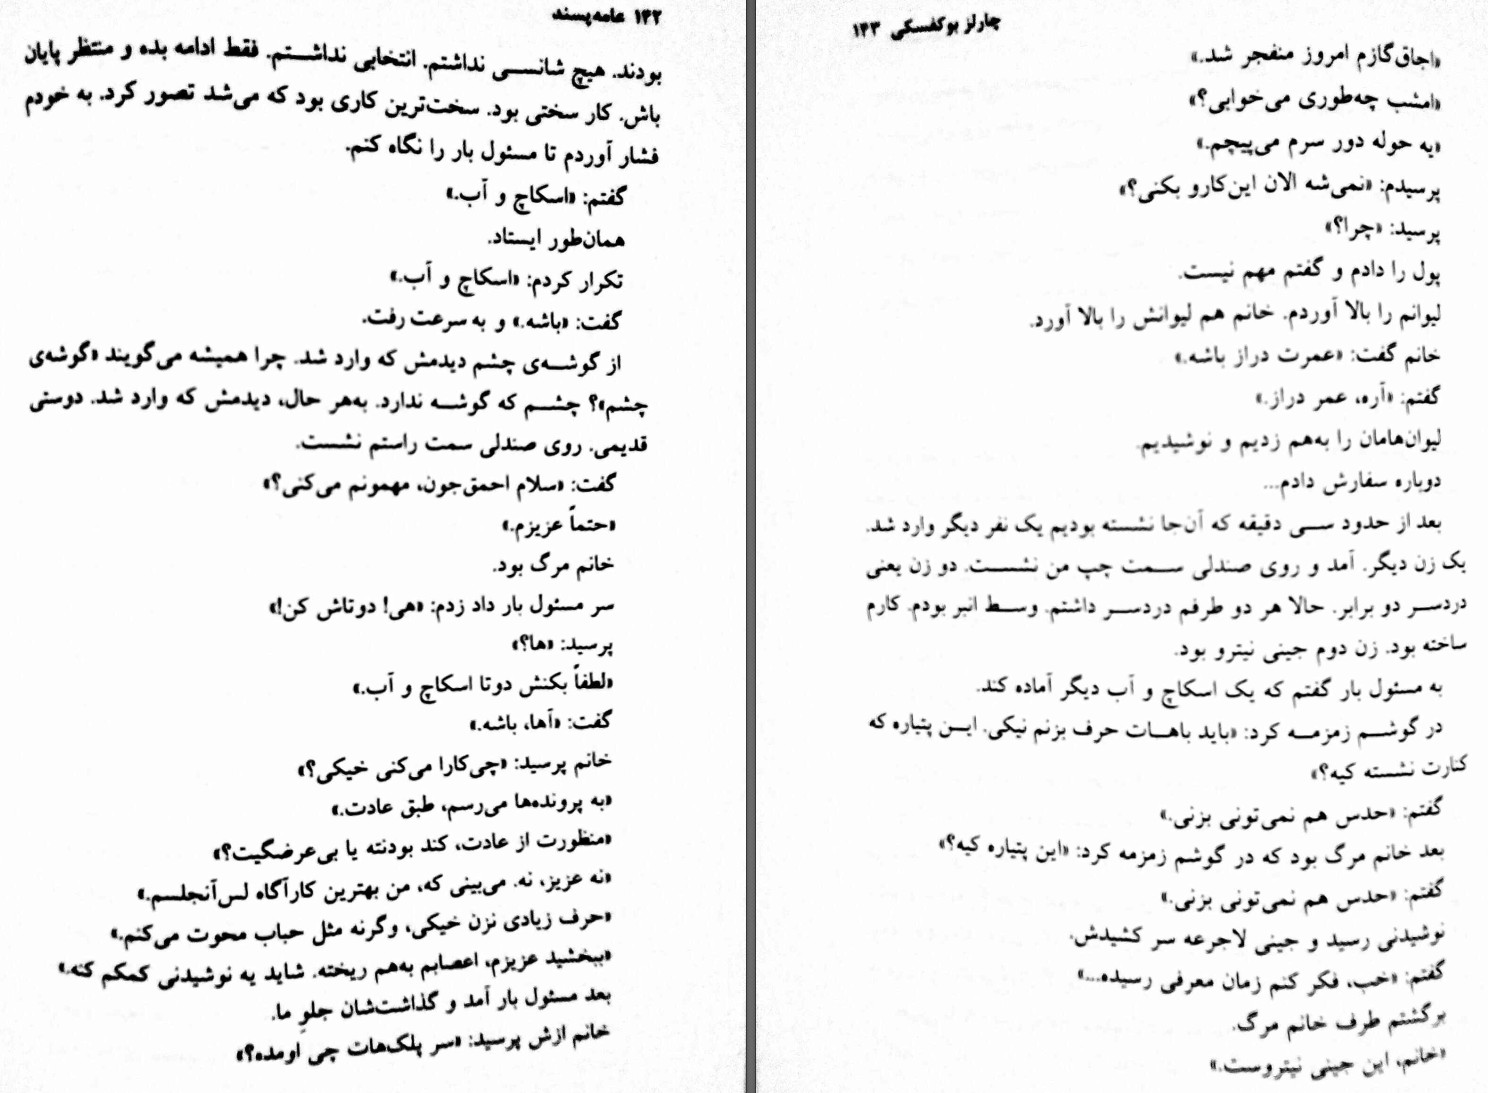 ۱۴۲ عامه‌پسند
بودند. هیچ شانسی نداشتم. انتخابی نداشتم. فقط ادامه بده و منتظر پایان
باش. کار سختی بود. سخت‌ترین کاری بود که می‌شد تصور کرد. به خودم
فشار آوردم تا مسئول بار را نگاه کنم.
گفتم: «اسکاچ و آب.»
همان‌طور ایستاد.
تکرار کردم: «اسکاچ و آب.»
گفت: «باشه.» و به سرعت رفت.
از گوشه‌ی چشم دیدمش که وارد شد. چرا همیشه می‌گویند «گوشه‌ی
چشم»؟ چشم که گوشه ندارد. به‌هر حال، دیدمش که وارد شد. دوستی
قدیمی. روی صندلی سمت راستم نشست.
گفت: «سلام احمق‌جون، مهمونم می‌کنی؟»
«حتماً عزیزم.»
خانم مرگ بود.
سر مسئول بار داد زدم: «هی! دوتاش کن!»
پرسید: «ها؟»
«لطفاً بکنش دوتا اسکاچ و آب.»
گفت: «آها، باشه.»
خانم پرسید: «چی‌کارا می‌کنی خیکی؟»
«به پرونده‌ها می‌رسم، طبق عادت.»
«منظورت از عادت، کند بودنته یا بی‌عرضگیت؟»
«نه عزیز، نه. می‌بینی که، من بهترین کارآگاه لس‌آنجلسم.»
«حرف زیادی نزن خیکی، وگرنه مثل حباب محوت می‌کنم.»
«ببخشید عزیزم، اعصابم به‌هم ریخته. شاید یه نوشیدنی کمکم کنه.»
بعد مسئول بار آمد و گذاشت‌شان جلوِ ما.
خانم ازش پرسید: «سر پلک‌هات چی اومده؟»
چارلز بوکفسکی ۱۴۳
«اجاق‌گازم امروز منفجر شد.»
«امشب چه‌طوری می‌خوابی؟»
«یه حوله دور سرم می‌پیچم.»
پرسیدم: «نمی‌شه الان این‌کارو بکنی؟»
پرسید: «چرا؟»
پول را دادم و گفتم مهم نیست.
لیوانم را بالا آوردم. خانم هم لیوانش را بالا آورد.
خانم گفت: «عمرت دراز باشه.»
گفتم: «آره، عمر دراز.»
لیوان‌هامان را به‌هم زدیم و نوشیدیم.
دوباره سفارش دادم...
بعد از حدود سی دقیقه که آن‌جا نشسته بودیم یک نفر دیگر وارد شد.
یک زن دیگر. آمد و روی صندلی سمت چپ من نشست. دو زن یعنی
دردسر دو برابر. حالا هر دو طرفم دردسر داشتم. وسط انبر بودم. کارم
ساخته بود. زن دوم جینی نیترو بود.
به مسئول بار گفتم که یک اسکاچ و آب دیگر آماده کند.
در گوشم زمزمه کرد: «باید باهات حرف بزنم نیکی. این پتیاره که
کنارت نشسته کیه؟»
گفتم: «حدس هم نمی‌تونی بزنی.»
بعد خانم مرگ بود که در گوشم زمزمه کرد: «این پتیاره کیه؟»
گفتم: «حدس هم نمی‌تونی بزنی.»
نوشیدنی رسید و جینی لاجرعه سر کشیدش.
گفتم: «خب، فکر کنم زمان معرفی رسیده...»
برگشتم طرف خانم مرگ.
«خانم، این جینی نیتروست.»